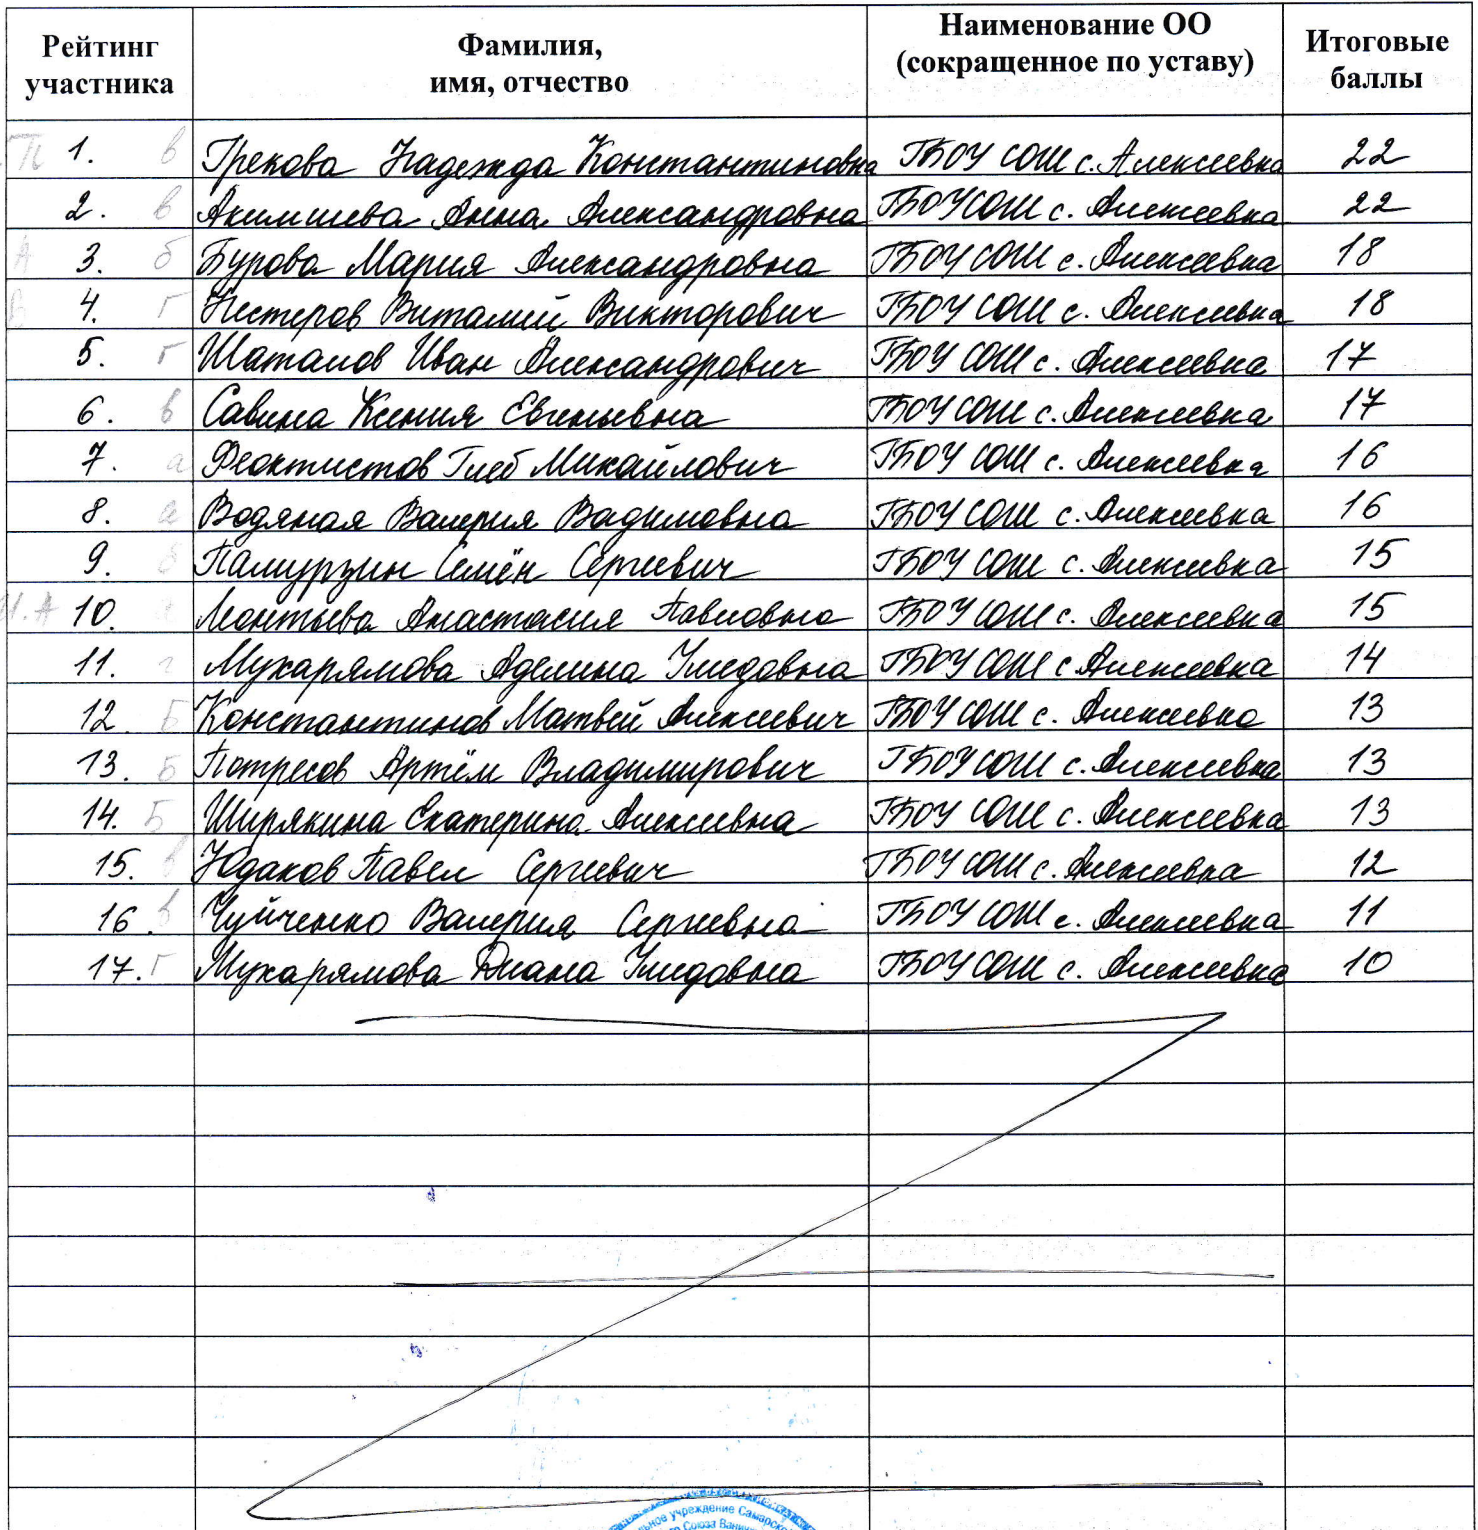 Рейтинг участника Фамилия, имя, отчество Наименование ОО (сокращенное по уставу) Итоговые баллы
П 1. в Грекова Надежда Константиновна ГБОУ СОШ с. Алексеевка 22
2. в Акимшева Анна Александровна ГБОУ СОШ с. Алексеевка 22
А 3. б Бурова Мария Александровна ГБОУ СОШ с. Алексеевка 18
В 4. г Нестеров Виталий Викторович ГБОУ СОШ с. Алексеевка 18
5. г Шаталов Иван Александрович ГБОУ СОШ с. Алексеевка 17
6. в Савина Ксения Евгеньевна ГБОУ СОШ с. Алексеевка 17
7. а Феоктистов Глеб Михайлович ГБОУ СОШ с. Алексеевка 16
8. а Водяная Валерия Вадимовна ГБОУ СОШ с. Алексеевка 16
9. б Памурзин Семён Сергеевич ГБОУ СОШ с. Алексеевка 15
И.А 10. а Леонтьева Анастасия Павловна ГБОУ СОШ с. Алексеевка 15
11. г Мухарямова Аделина Умедовна ГБОУ СОШ с Алексеевка 14
12 Б Константинов Матвей Алексеевич ГБОУ СОШ с. Алексеевка 13
13. Б Потресов Артём Владимирович ГБОУ СОШ с. Алексеевка 13
14. Б Ширякина Екатерина Алексеевна ГБОУ СОШ с. Алексеевка 13
15. в Юдаков Павел Сергеевич ГБОУ СОШ с. Алексеевка 12
16. в Чуйченко Валерия Сергеевна ГБОУ СОШ с. Алексеевка 11
17. г Мухарямова Диана Умедовна ГБОУ СОШ с. Алексеевка 10
учреждение Самарско
Союза